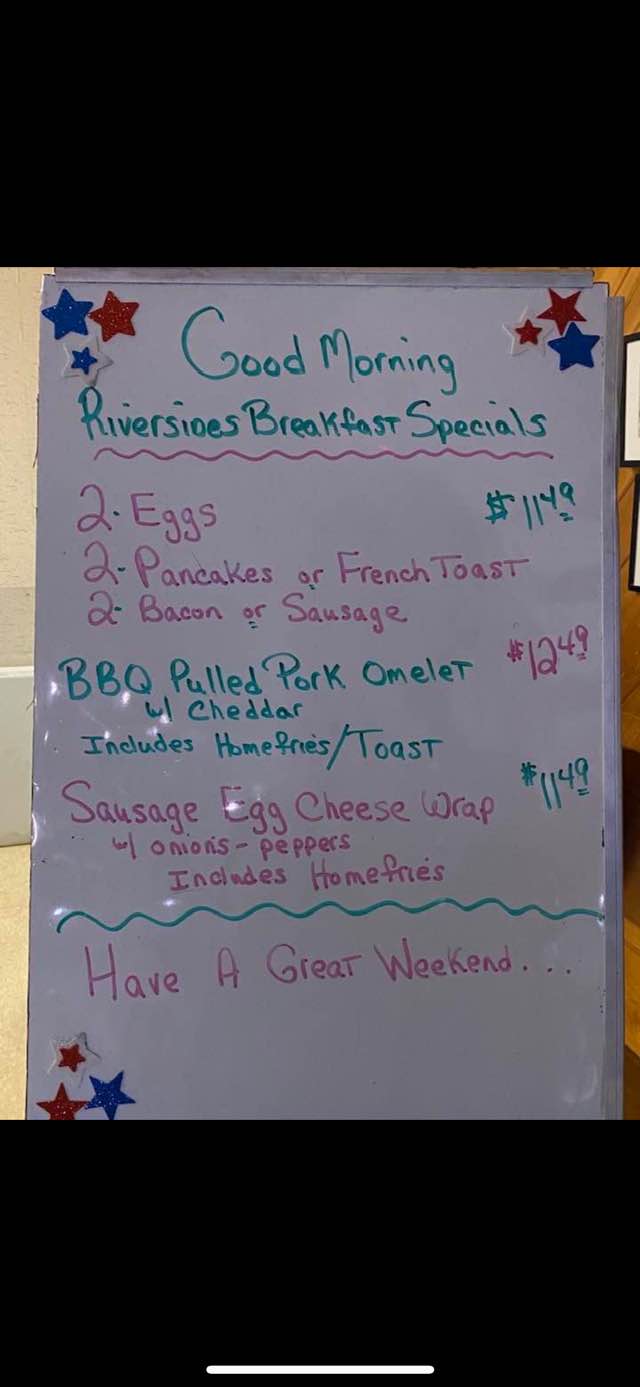 Good Morning
Riversides Breakfast Specials
2- Eggs $11.49
2- Pancakes or French Toast
2- Bacon or Sausage
BBQ Pulled Pork Omelet $12.49
w/ Cheddar
Includes Homefries/Toast
Sausage Egg Cheese Wrap $11.49
w/ onions - peppers
Includes Homefries
Have A Great Weekend...